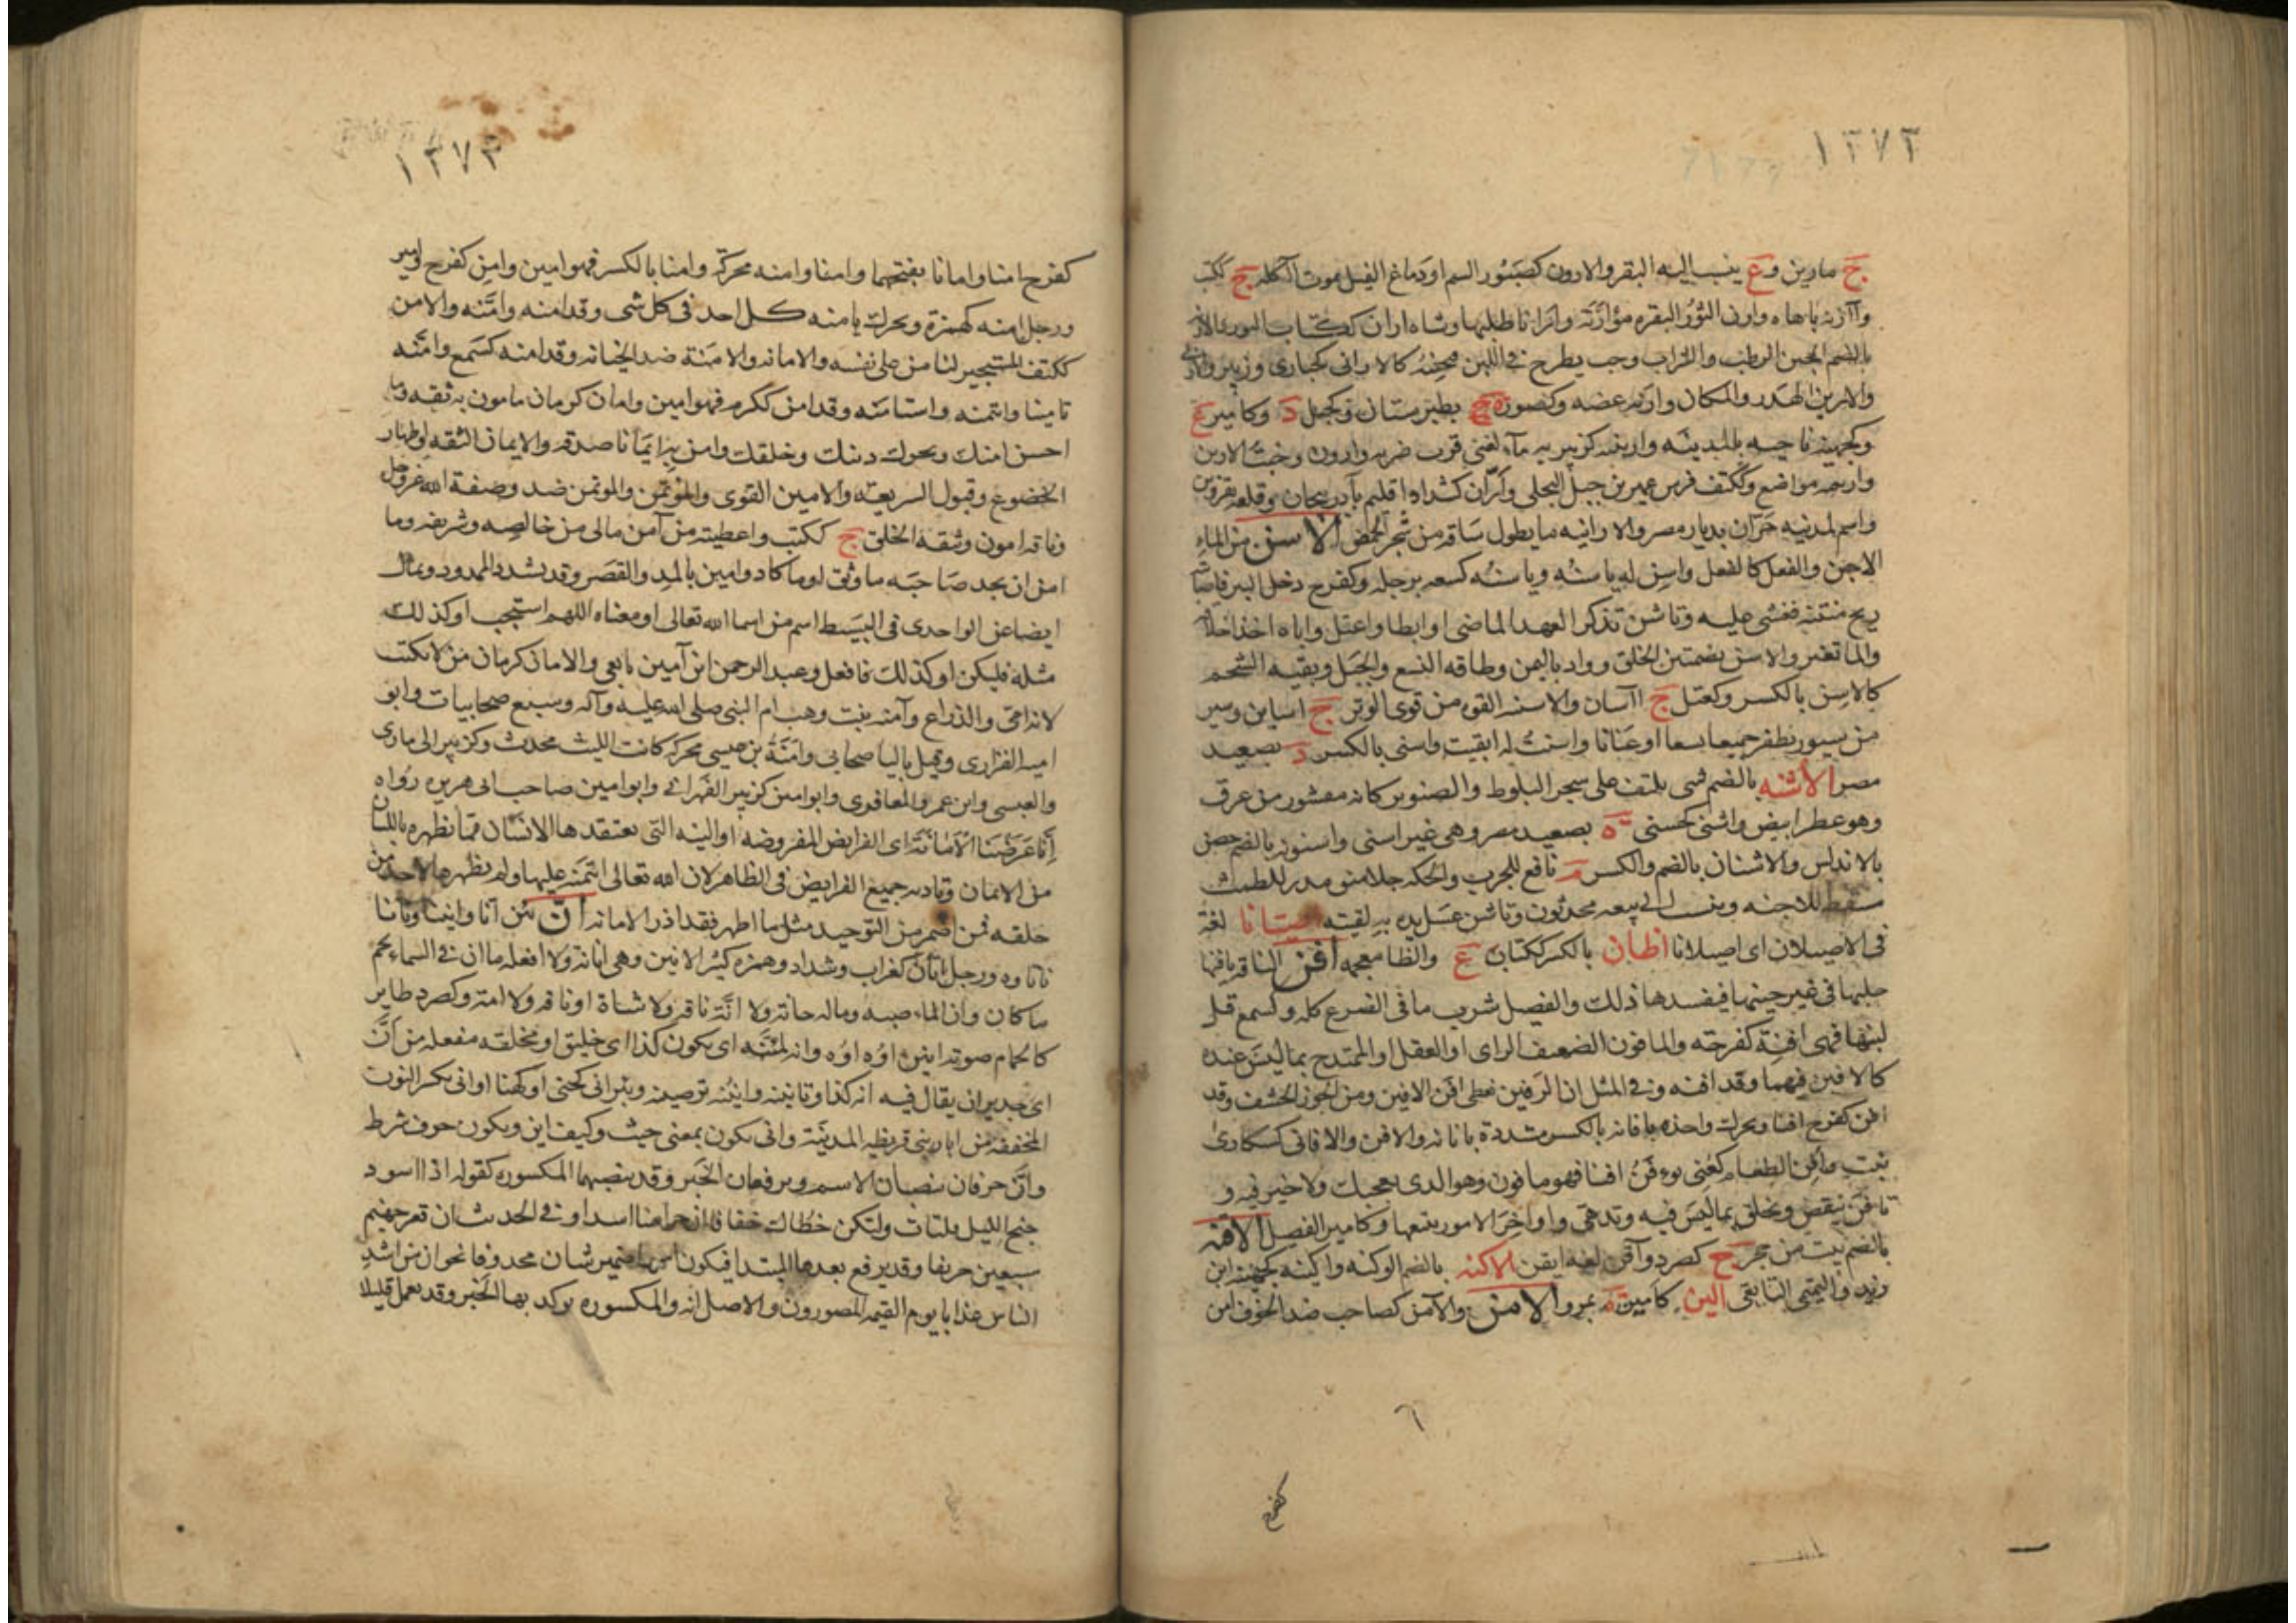 ١٣٧٢
ج مارين وع ينسب اليه البقر والارون كصبور السم او دماغ الفيل موت اكله ج ككتب
بالضم الجبن الرطب والتراب وحب يطرح في اللبن فيجبنه كالاراني كحبارى وزبير
والارين الهدر والمكان وارنه عضه وكصورة ج بطبرستان وكجبل د وكامير ع
وكجهينة ناحيه بالمدينه وارينه كزبيريه ماء لغني قرب ضريه وارون وخبت الارين
وارينه مواضع وككتف فرس عمير بن جبل البجلى وأرّان كشداد اقليم بآذربيجان وقلعه بقزوين
واسم لمدينه حرّان بديار مصر والارانيه ما يطول ساقه من شجر الحمض الاسن من الماء
الاجن والفعل كالفعل واسن له ياسنه وياسنه كسعه برجله وكفرح دخل البير فاصابته
ريح منتنه فغشى عليه وتاسن تذكر العهد الماضى وابطا واعتل واباه اخذ اخلاقه
والما تغير والاسن بضمتين الخلق وواد باليمن وطاقه النسع والحبل وبقيه الشحم
كالاسن بالكسر وكعتل ج اآسان والاسنه القوه من قوى الوتر ج اساين وسير
من سيور تظفر جميعا نسعا او عنانا واسنت له ابقيت واسنى بالكسر د بصعيد
مصر الأشنه بالضم شى يلتف على شجر البلوط والصنوبر كانه مقشور من عرق
وهو عطر ابيض واشنى كحسنى ة بصعيد مصر وهى غير اسنى واسنونه بالضم حصن
بالاندلس والاشنان بالضم والكسر م نافع للجرب والحكه جلا منق مدر للطمث
مسقط للاجنه وينسب الى بيعه محدثون وتاشن غسل يده به لقيته اصيتانا لغة
فى الاصيلان اى اصيلانا اطان بالكسر ككتاب ع والظا معجمه افن الناقه يافنها
حلبها فى غير حينها فيفسدها ذلك والفصيل شرب ما فى الضرع كله وكسمع قل
لبنها فهى افنة كفرحه والمافون الضعيف الراى والعقل والمتمدح بما ليس عنده
كالافين فيهما وقد افنه وفى المثل ان الرقين تغطى افن الافين ومن الجوز الحشف وقد
افن كفرح افنا ويحرك واخذه بافانه بالكسر مشددة بابانه والافن والافانى كسكارى
نبت وافن الطعام كعنى يوفن افنا فهو مافون وهو الذى يعجبك ولا خير فيه و
تافن تنقص وتخلق بما ليس فيه وتدهى واواخر الامور يتبعها وكامير الفصيل الاقنه
بالضم بيت من حجر ج كصرد وآقن لغه ايقن الاكنه بالضم الوكنه واكينه كجهينه ابن
وزيد التيمى التابعى الين كامير ة بمرو الامن والآمن كصاحب ضد الخوف امن
كفرح
١٣٧٣
كفرح امنا وامانا بفتحهما وامنا وامنه محركة وامنا بالكسر فهو امين وامن كفرح وامير
ورجل امنه كهمزة ويحرك يامنه كل احد فى كل شى وقد امنه وامّنه والامن
ككتف المستجير لنا من على نفسه والامانه والامنة ضد الخيانه وقد امنه كسمع وامّنه
تامينا وائتمنه واستامنه وقد امن ككرم فهو امين وامان كرمان مامون به ثقه وما
احسن امنك ويحرك دينك وخلقك وامن به ايمانا صدقه والايمان الثقه واظهار
الخضوع وقبول الشريعه والامين القوى والموتمن والموتمن ضد وصفة الله عز وجل
وناقه امون وثيقة الخلق ج ككتب واعطيته من آمن مالى من خالصه وشريفه وما
امن ان يجد صاحبه ما وثق او ما كاد وامين بالمد والقصر وقد يشدد الممدود ويمال
ايضا عن الواحدى فى البسيط اسم من اسما الله تعالى او معناه اللهم استجب او كذلك
مثله فليكن او كذلك فافعل وعبد الرحمن ابن آمين تابعى والامان كرمان من لا يكتب
لانه امى والذراع وآمنه بنت وهب ام النبى صلى الله عليه وآله وسبع صحابيات وابو
اميه الفزارى وقيل باليا صحابى وامنة بن عيسى محركه كاتب الليث محدث وكزبير الى مادى
والعبسى وابن عمرو المعافرى وابو امين كزبير البهرانى وابو امين صاحب ابى هريره رواه
إنا عرضنا الأمانة اى الفرايض المفروضه او النيه التى يعتقدها الانسان فيما يظهره باللسان
من الايمان ويؤديه جميع الفرايض فى الظاهر لان الله تعالى ائتمنه عليها ولم يظهرها لاحد من
خلقه فمن اضمر من التوحيد مثل ما اظهر فقد ادى الامانه أنّ يئن آنا وانينا وتانا
تاناوه ورجل انان كغراب وشداد وهمزه كثير الانين وهى انانه ولا افعله ما ان فى السماء نجم
ما كان وان الماء صبه وماله حانة ولا انّة ناقه ولا شاة او ناقه ولا امة وكصرد طاير
كالحمام صوته انين اوه اوه وانه لمئنّه اى يكون كذا اى خليق او مخلقه مفعله من انّ
اى جدير ان يقال فيه انه كذا وتانيته وانّنته ترضيته وبئر انى كحتى او كهنا او انى بكسر النون
المخففه من ابار بنى قريظه المدينة وانى يكون بمعنى حيث وكيف اين ويكون حرف شرط
وانّ حرفان ينصبان الاسم ويرفعان الخبر وقد ينصبهما المكسوره كقوله اذا اسود
جنح الليل فلتات ولتكن خطاك خفافا ان حراسنا اسدا وفى الحديث ان قعر جهنم
سبعين خريفا وقد يرفع بعدها المبتدا فيكون اسمها ضمير شان محذوفا نحو ان من اشد
الناس عذابا يوم القيمه المصورون والاصل انه والمكسوره يوكد بها الخبر وقد تعمل قليلا